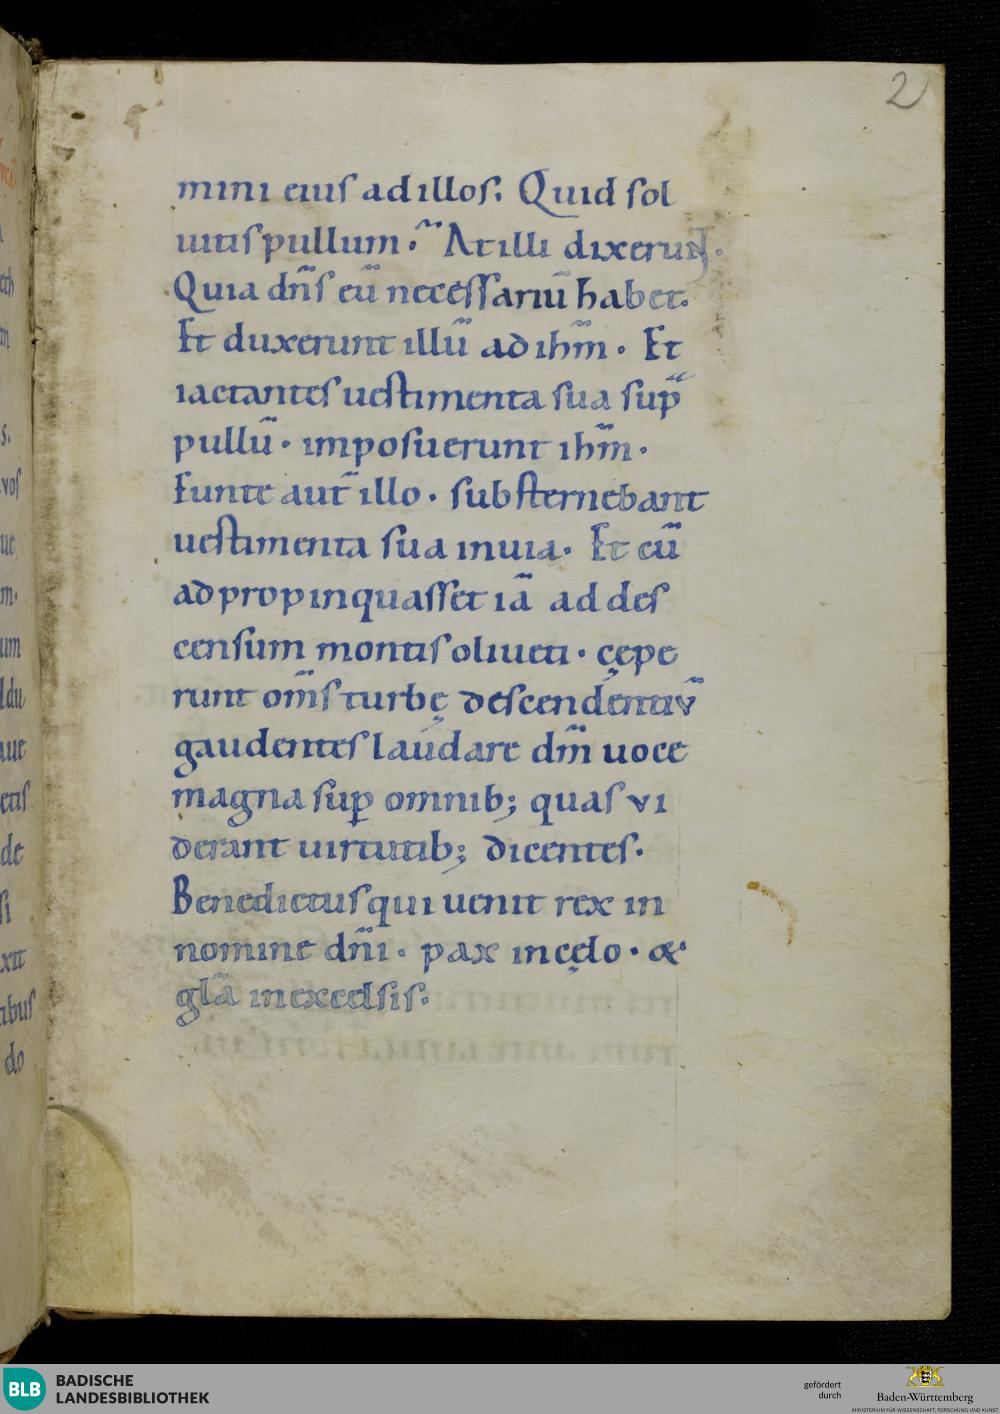 2
mini eius ad illos. Quid sol
uitis pullum. At illi dixerunt.
Quia dn̄s eū necessariū habet.
Et duxerunt illū ad ihm̄. Et
iactantes uestimenta sua sup̄
pullū. imposuerunt ihm̄.
Eunte aut̄ illo. substernebant
uestimenta sua inuia. Et cū
adpropinquasset iā ad des
censum montis oliueti. cępe
runt om̄s turbę descendentiū
gaudentes laudare dm̄ uoce
magna suꝑ omnib; quas vi
derant uirtutib; dicentes.
Benedictus qui uenit rex in
nomine dn̄i. pax incęlo. &
glā inexcelsis.
BLB
BADISCHE
LANDESBIBLIOTHEK
gefördert
durch
Baden-Württemberg
MINISTERIUM FÜR WISSENSCHAFT, FORSCHUNG UND KUNST